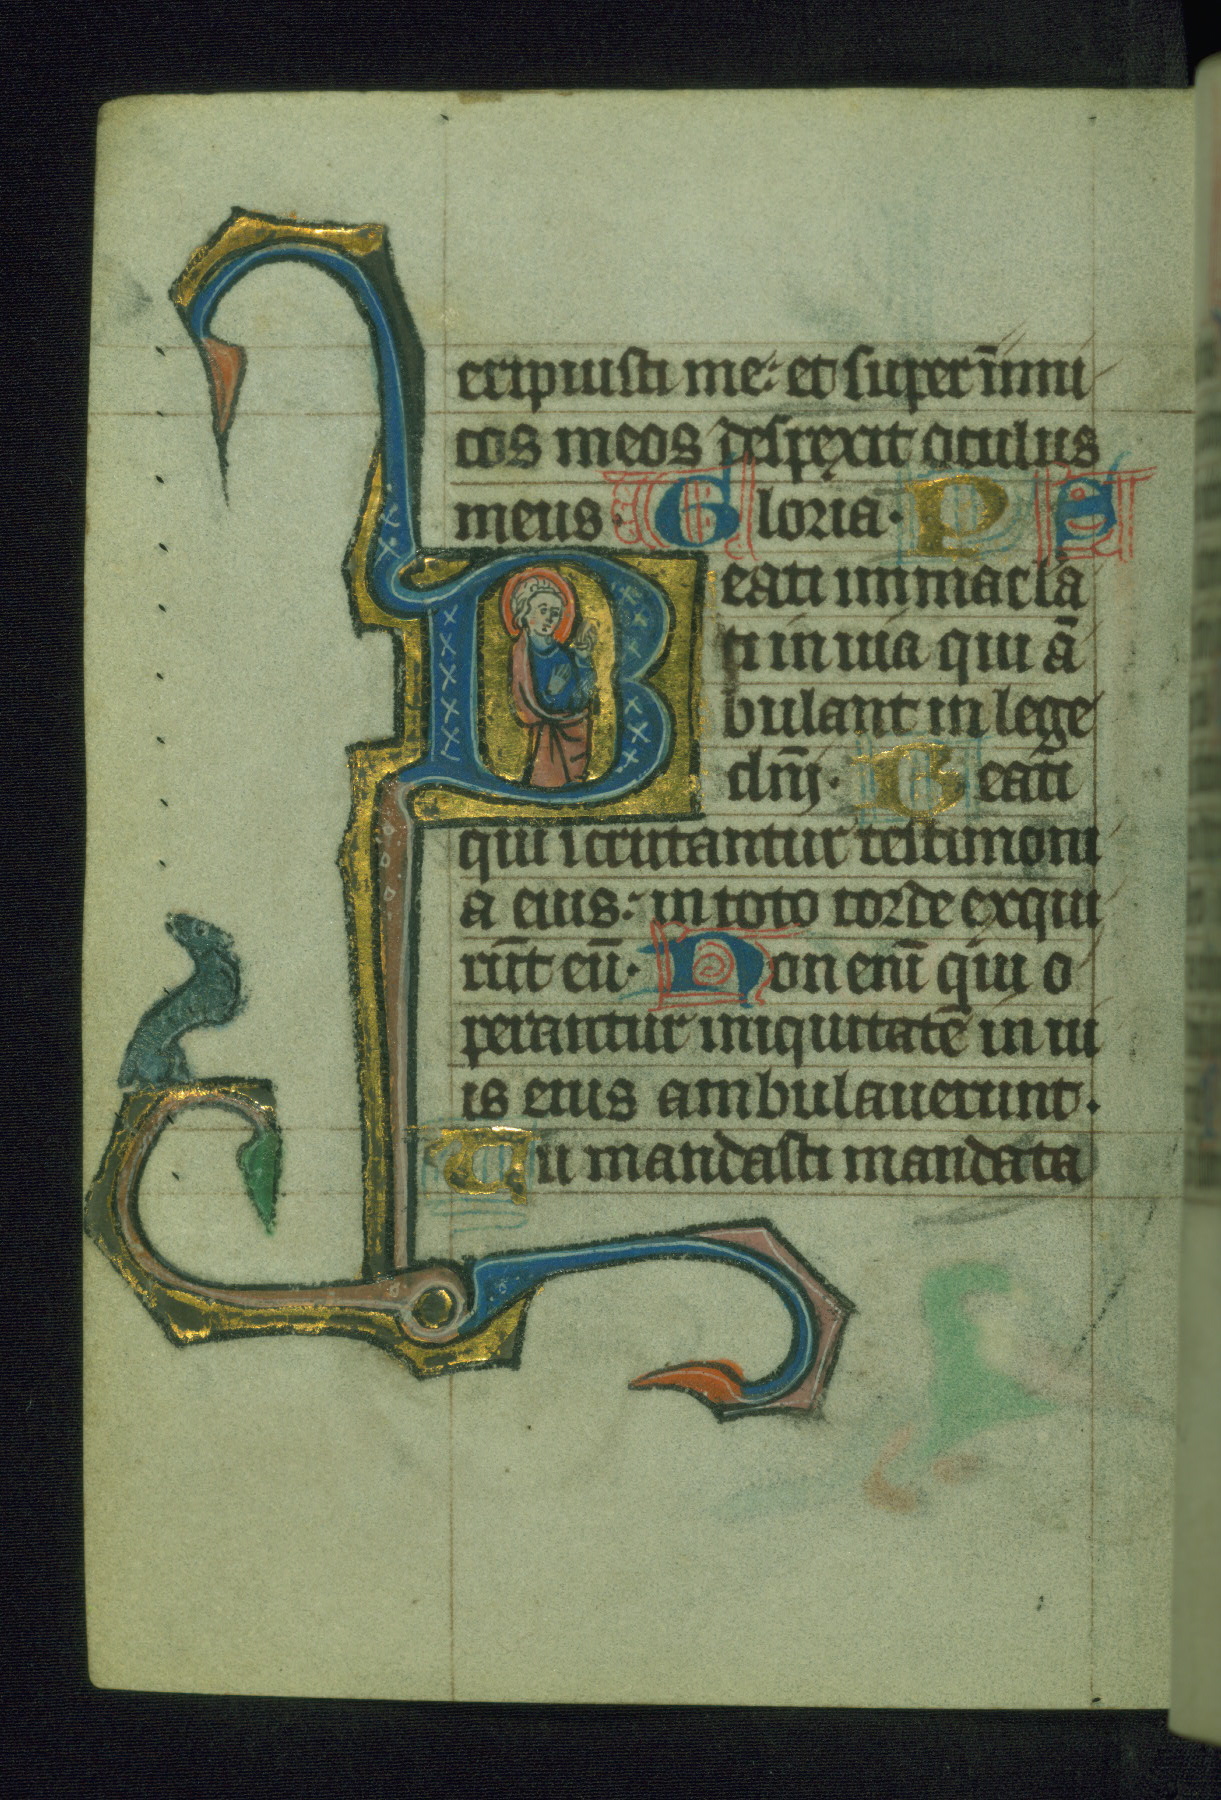 eripiusti me: et super inimi
cos meos despexit oculus
meus. Gloria. P E
Beati immacula
ti in uia qui ā
bulant in lege
dn̄i. Beati
qui scrutantur testimoni
a eius: in toto corde exqui
rūt eū. Non enī qui o
perantur iniquitatē in ui
is eius ambulauerunt.
Tu mandasti mandata